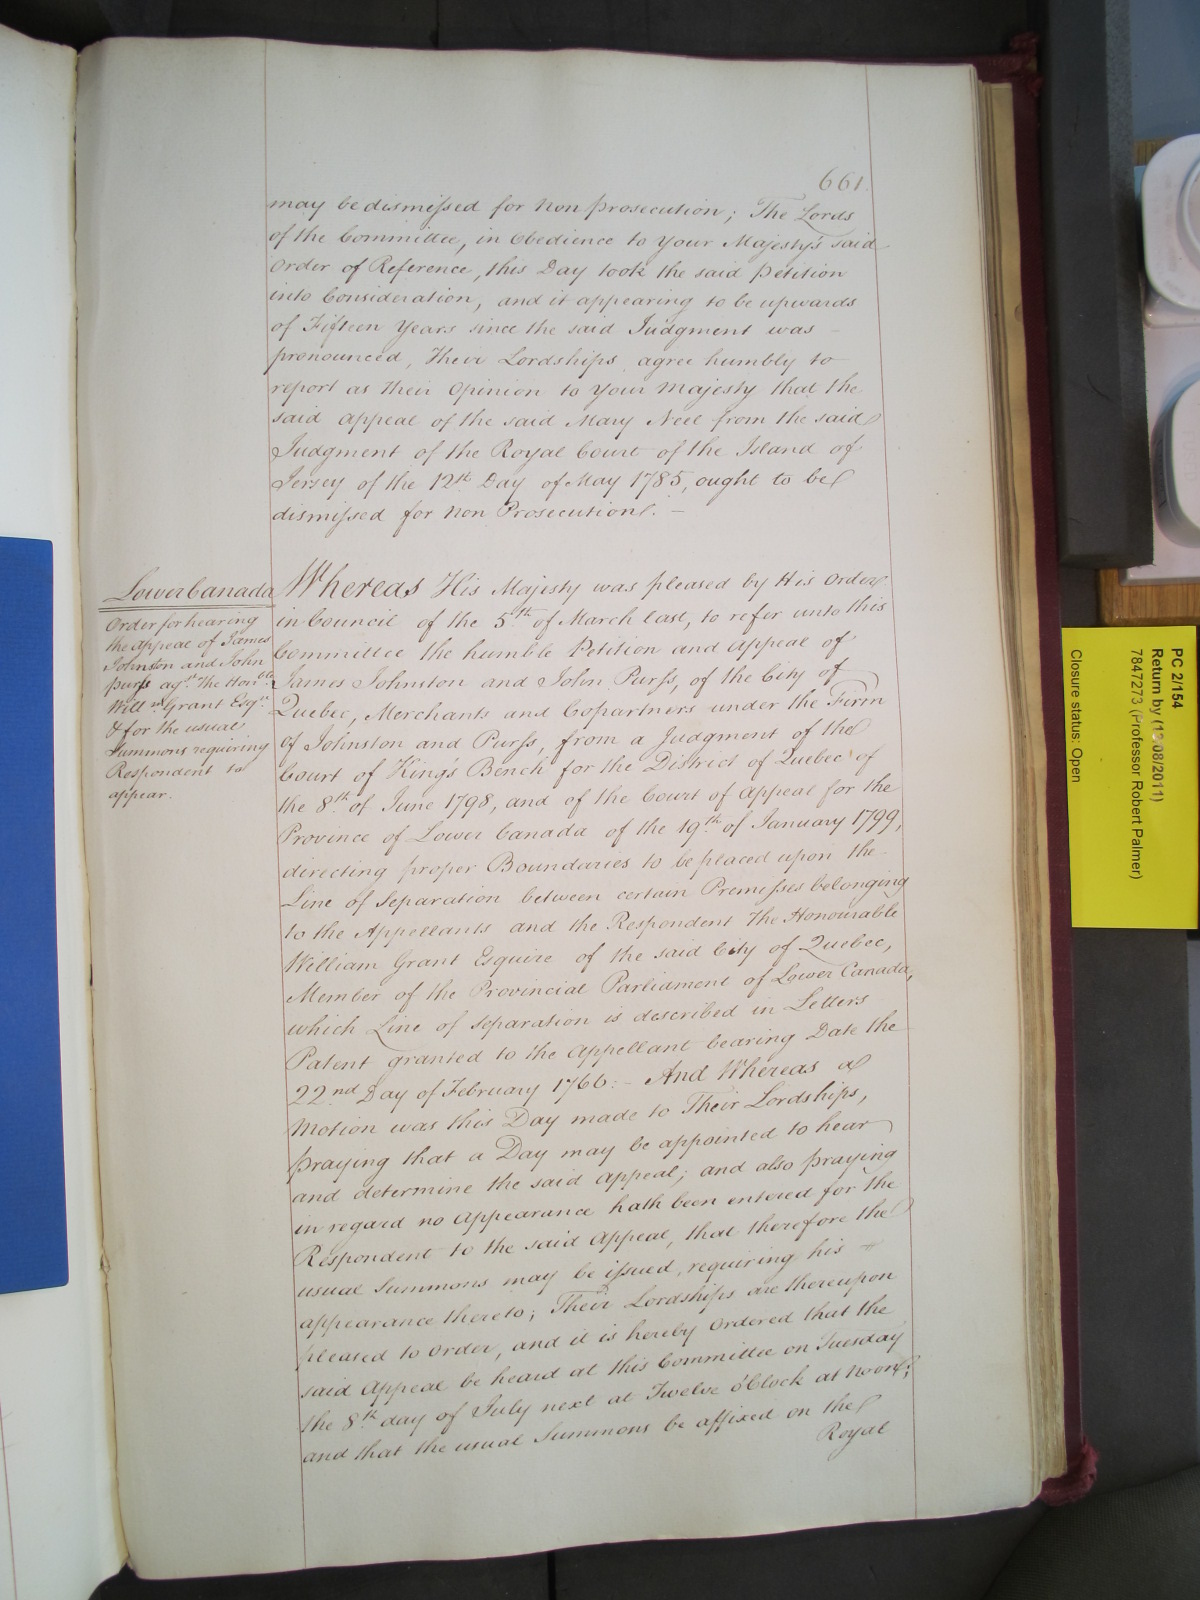 661.
may be dismissed for non prosecution; The Lords
of the Committee, in Obedience to Your Majesty's said
Order of Reference, this Day took the said Petition
into Consideration, and it appearing to be upwards
of Fifteen Years since the said Judgment was
pronounced, Their Lordships agree humbly to
report as their Opinion to Your Majesty that the
said Appeal of the said Mary Neel from the said
Judgment of the Royal Court of the Island of
Jersey of the 12th Day of May 1785, ought to be
dismissed for non Prosecution. —
Lower Canada
Order for hearing
the Appeal of James
Johnston and John
Purss agst. The Honble.
Willm. Grant Esqr.
& for the usual
Summons requiring
Respondent to
appear.
Whereas His Majesty was pleased by His Order
in Council of the 5th of March last, to refer unto this
Committee the humble Petition and Appeal of
James Johnston and John Purss, of the City of
Quebec, Merchants and Copartners under the Firm
of Johnston and Purss, from a Judgment of the
Court of King's Bench for the District of Quebec of
the 8th of June 1798, and of the Court of Appeal for the
Province of Lower Canada of the 19th of January 1799,
directing proper Boundaries to be placed upon the
Line of Separation between certain Premisses belonging
to the Appellants and the Respondent The Honourable
William Grant Esquire of the said City of Quebec,
Member of the Provincial Parliament of Lower Canada,
which Line of Separation is described in Letters
Patent granted to the Appellant bearing Date the
22nd Day of February 1766:— And Whereas a
Motion was this Day made to Their Lordships,
praying that a Day may be appointed to hear
and determine the said Appeal; and also praying
in regard no Appearance hath been entered for the
Respondent to the said Appeal, that therefore the
usual Summons may be issued, requiring his
appearance thereto; Their Lordships are thereupon
pleased to Order, and it is hereby Ordered that the
said Appeal be heard at this Committee on Tuesday
the 8th day of July next at Twelve o'Clock at noon;
and that the usual Summons be affixed on the
Royal
PC 2/154
Return by (19/08/2011)
7847273 (Professor Robert Palmer)
Closure status: Open